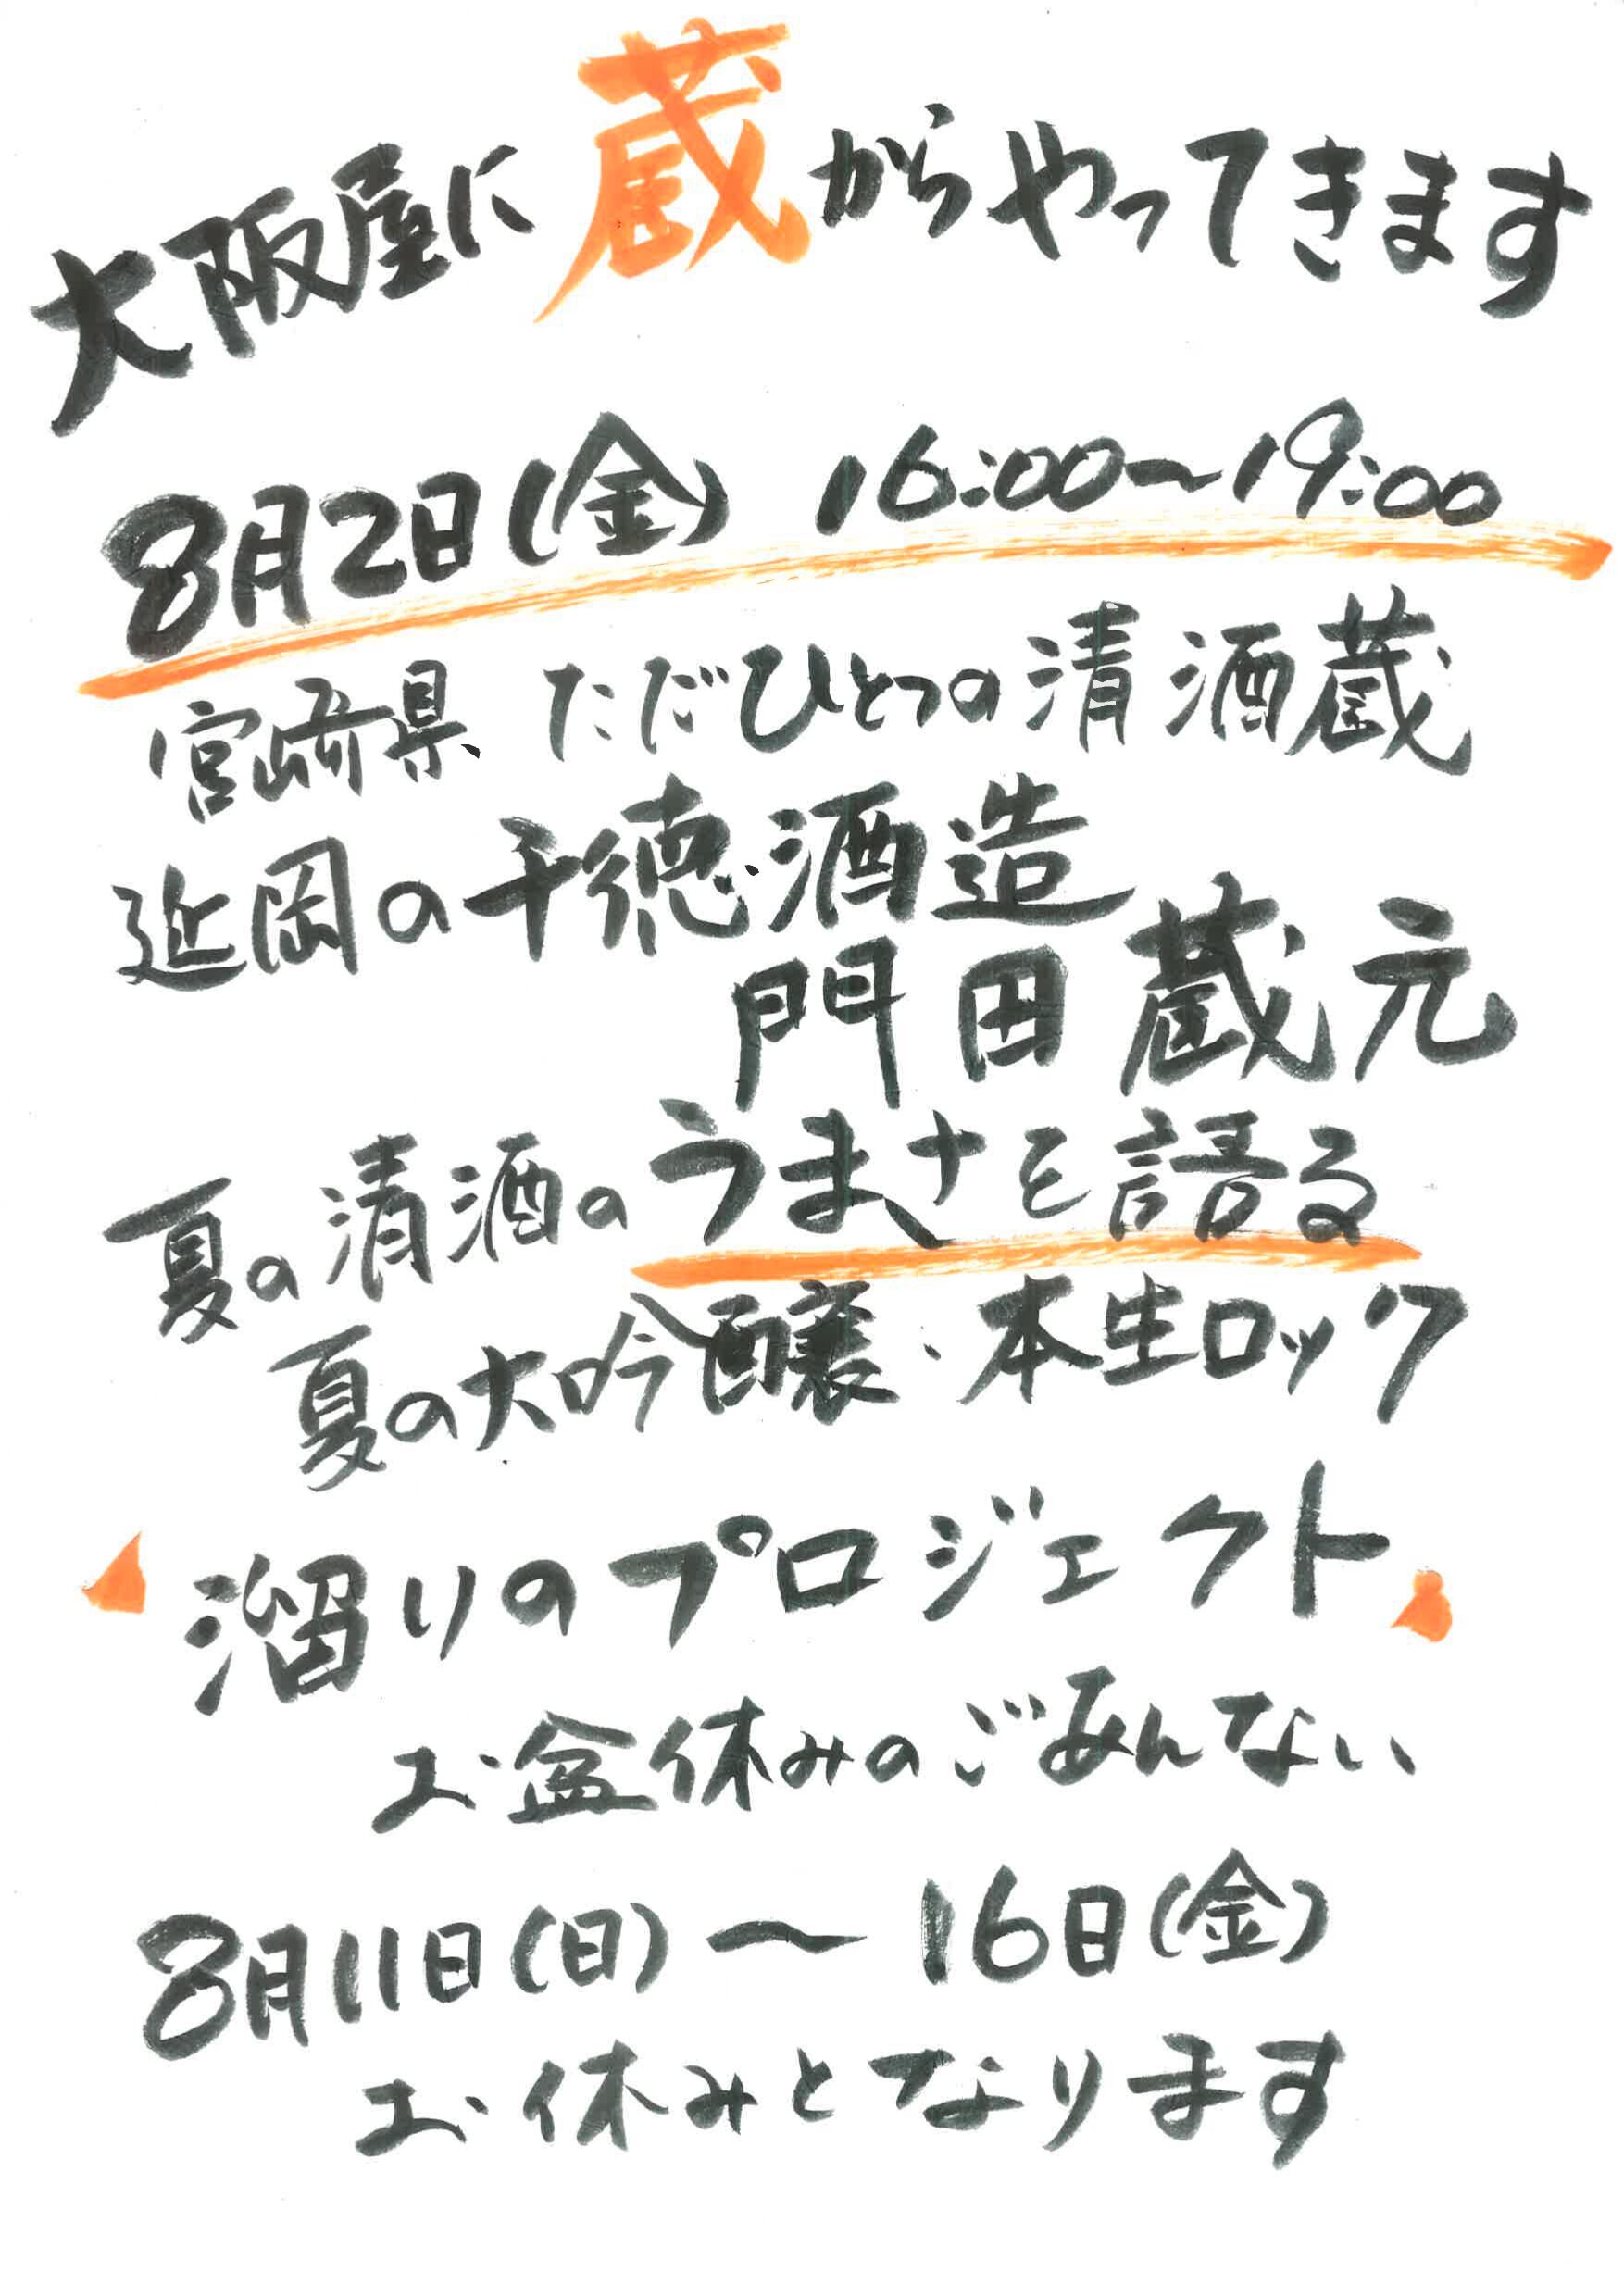 大阪屋に蔵からやってきます
8月2日(金) 16:00~19:00
宮崎県 ただひとつの清酒蔵
延岡の千徳酒造
門田蔵元
夏の清酒のうまさを語る
夏の大吟醸・本生ロック
溜りのプロジェクト
お盆休みのごあんない
8月11日(日)~16日(金)
お休みとなります